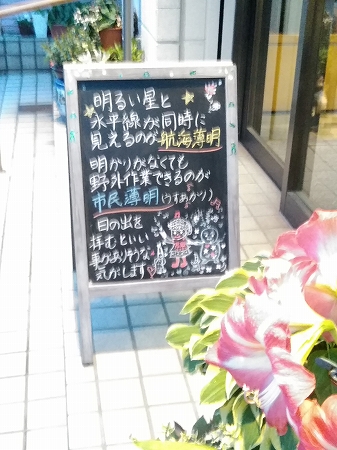 明るい星と
水平線が同時に
見えるのが航海薄明
明かりがなくても
野外作業できるのが
市民薄明(うすあかり)
日の出を
拝むといい
事がありそうな
気がします